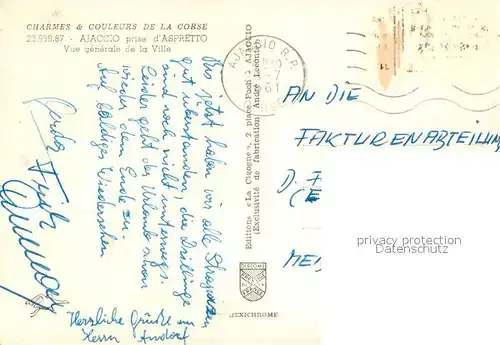 CHARMES & COULEURS DE LA CORSE
23.999.87 - AJACCIO prise d'ASPRETTO
Vue générale de la Ville
Bis jetzt haben wir alle Strapazen
gut überstanden, die Drillinge
sind noch nicht unterwegs.
Leider geht der Urlaub schon
wieder dem Ende zu.
Auf baldiges Wiedersehen
Herzliche Grüße an
Herrn Andorf
Editions «La Cigogne», 2 place Foch - AJACCIO
(Exclusivité de fabrication André Leconte)
AJACCIO R.P.
MEXICHROME
AN DIE
FAKTURENABTEILUNG
privacy protection
Datenschutz